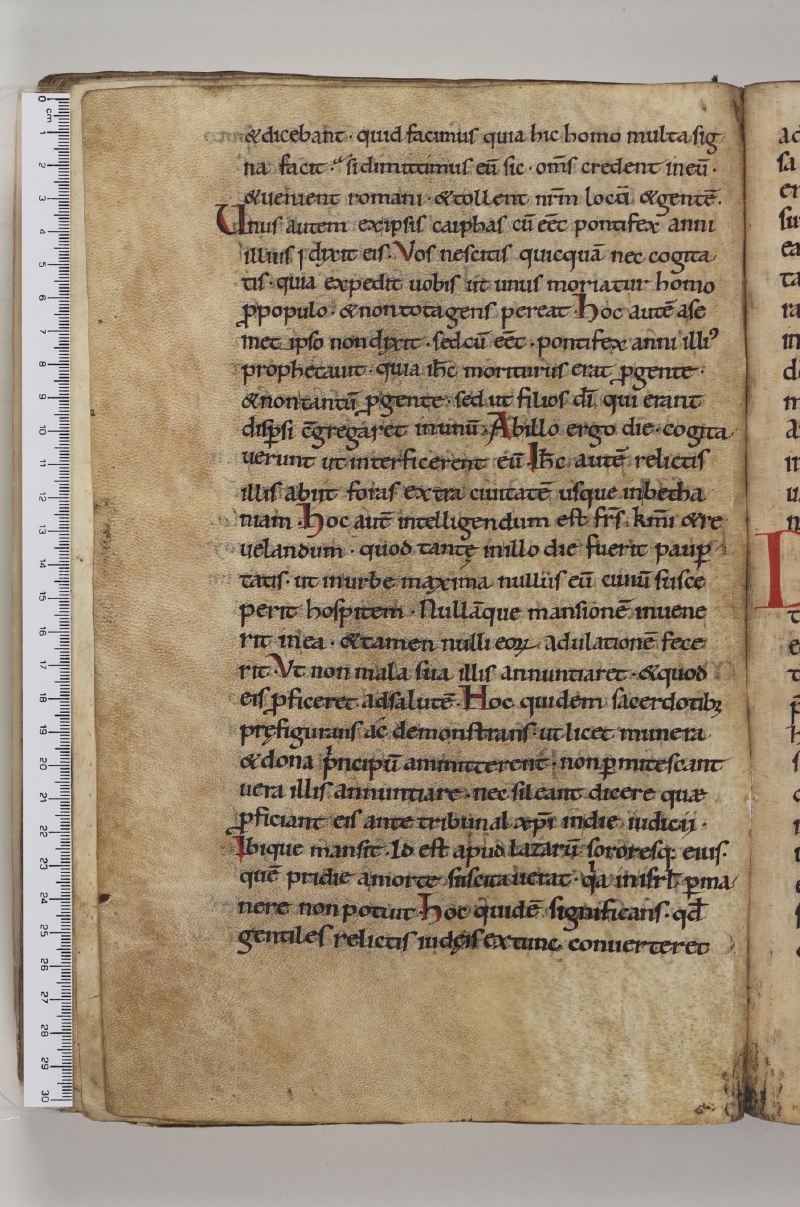 &dicebant· quid facimus quia hic homo multa sig
na facit· si dimittimus eū sic· om̄s credent in eū·
&uenient romani· &tollent nr̄m locū &gentē.
Unus autem ex ipsis caiphas cū eēt pontifex anni
illius dixit eis· Vos nescitis quicquā nec cogita
tis· quia expedit uobis ut unus moriatur homo
ꝓpopulo· &non tota gens pereat· hoc autē a se
met ipso non dixit· sed cū eēt· pontifex anni illiꝰ
prophetauit· quia ih̄c moriturus erat ꝓgente·
&non tantū ꝓgente· sed ut filios dī qui erant
disꝑsi c̄gregaret in unū· Ab illo ergo die· cogita
uerunt ut interficerent eū· Ih̄c autē relictis
illis abiit foras extra ciuitatē usque in betha
niam· hoc autē intelligendum est fr̄s k̄mi &re
uelandum· quod tantę in illo die fuerit pauꝑ
tatis· ut in urbe maxima nullus eū cunū susce
perit hospitem· Nullāque mansionē inuene
rit in ea· &tamen nulli eoꝝ adulationē fece
rit· Vt non mala sua illis annuntiaret· &quod
eis ꝓficeret ad salutē· Hoc quidem sacerdotibꝫ
pręfigurans ac demonstrans· ut licet munera
&dona pⁱncipū amitterent· non ꝑmitescant
uera illis annuntiare· nec sileant dicere quæ
ꝓficiant eis ante tribunal xp̄i in die iudicii·
Ibique mansit· Id est apud lazarū sororesq; eius·
quē pridie a morte suscitauerat· qͣa in isrł ꝑma
nere non potuit· hoc quidē significans· qđ
gentiles relictis iudęis ex tunc conuerteret
ad
sa
en
su
ea
ta
ra
in
de
m
a
in
u
n